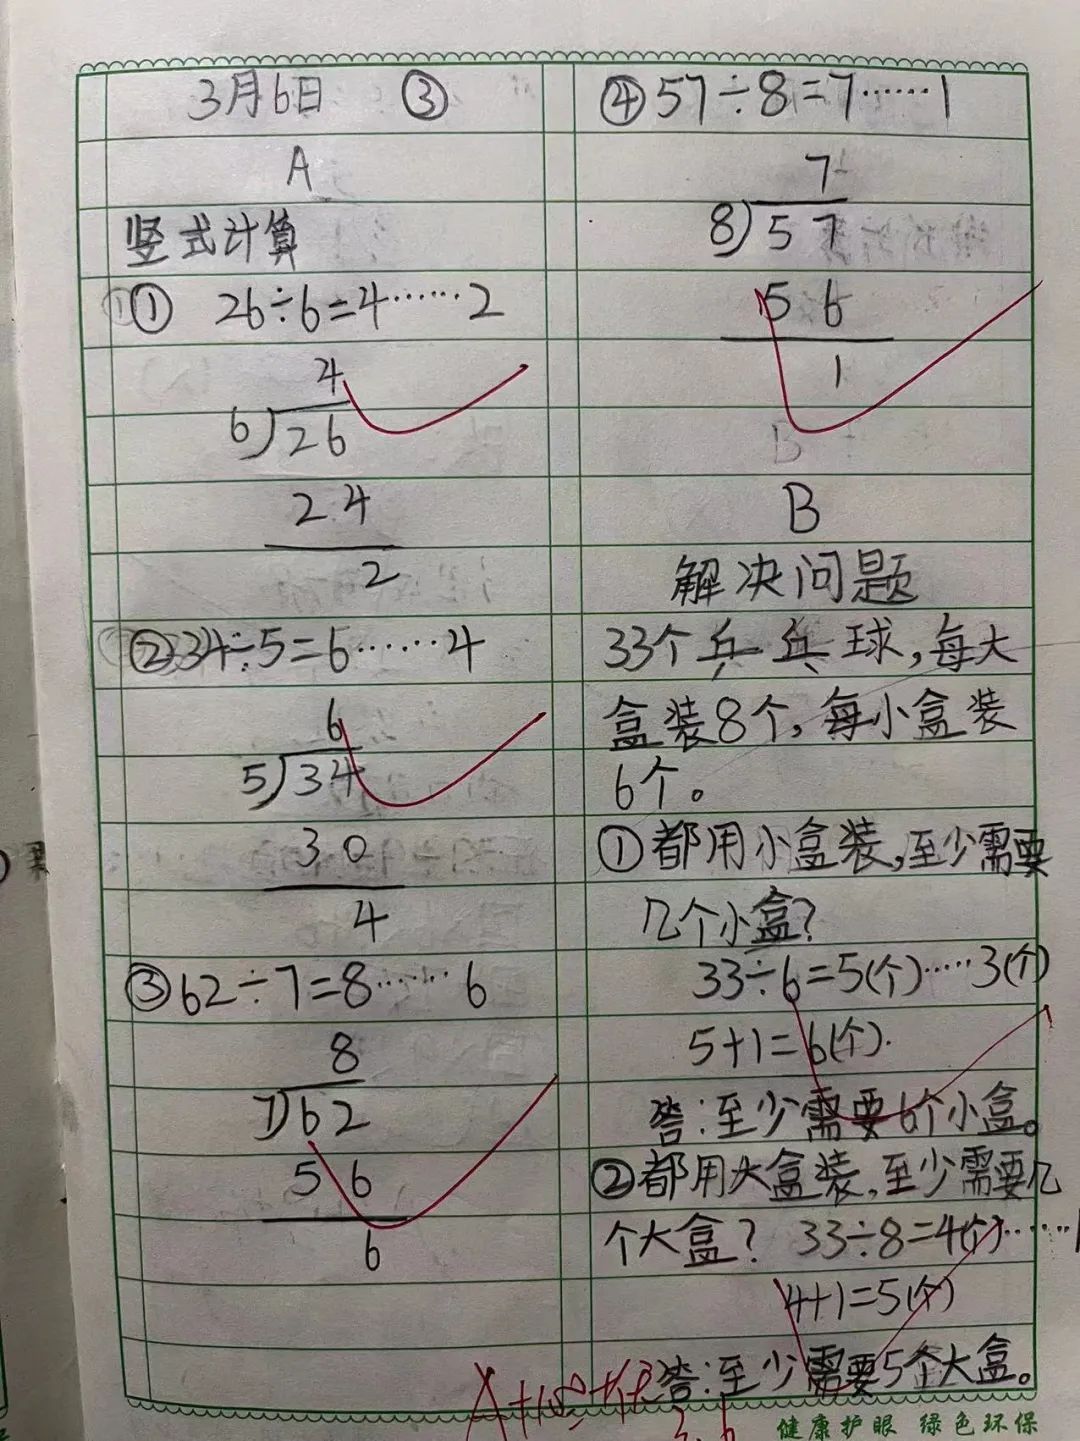 3月6日 ③
A
竖式计算
① 26÷6=4……2
4
6)26
24
2
②34÷5=6……4
6
5)34
30
4
③62÷7=8……6
8
7)62
56
6
④57÷8=7……1
7
8)57
56
1
B
B
解决问题
33个乒乓球,每大
盒装8个,每小盒装
6个。
①都用小盒装,至少需要
几个小盒?
33÷6=5(个)……3(个)
5+1=6(个).
答:至少需要6个小盒。
②都用大盒装,至少需要几
个大盒? 33÷8=4(个)……1
4+1=5(个)
答:至少需要5个大盒。
3.6
健康护眼 绿色环保